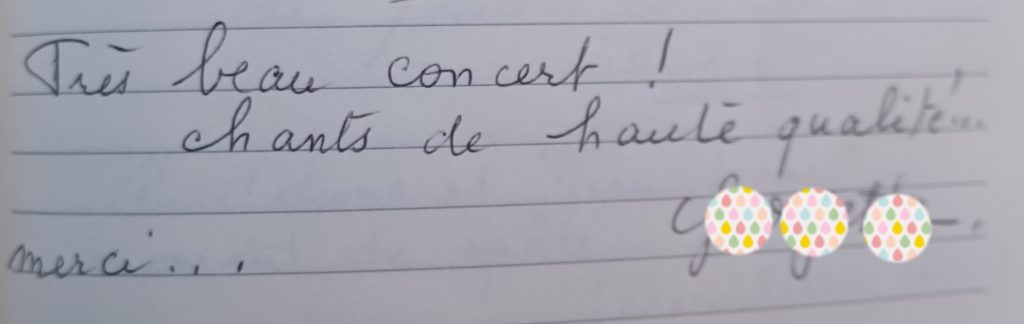 Très beau concert !
chants de haute qualité...
merci...